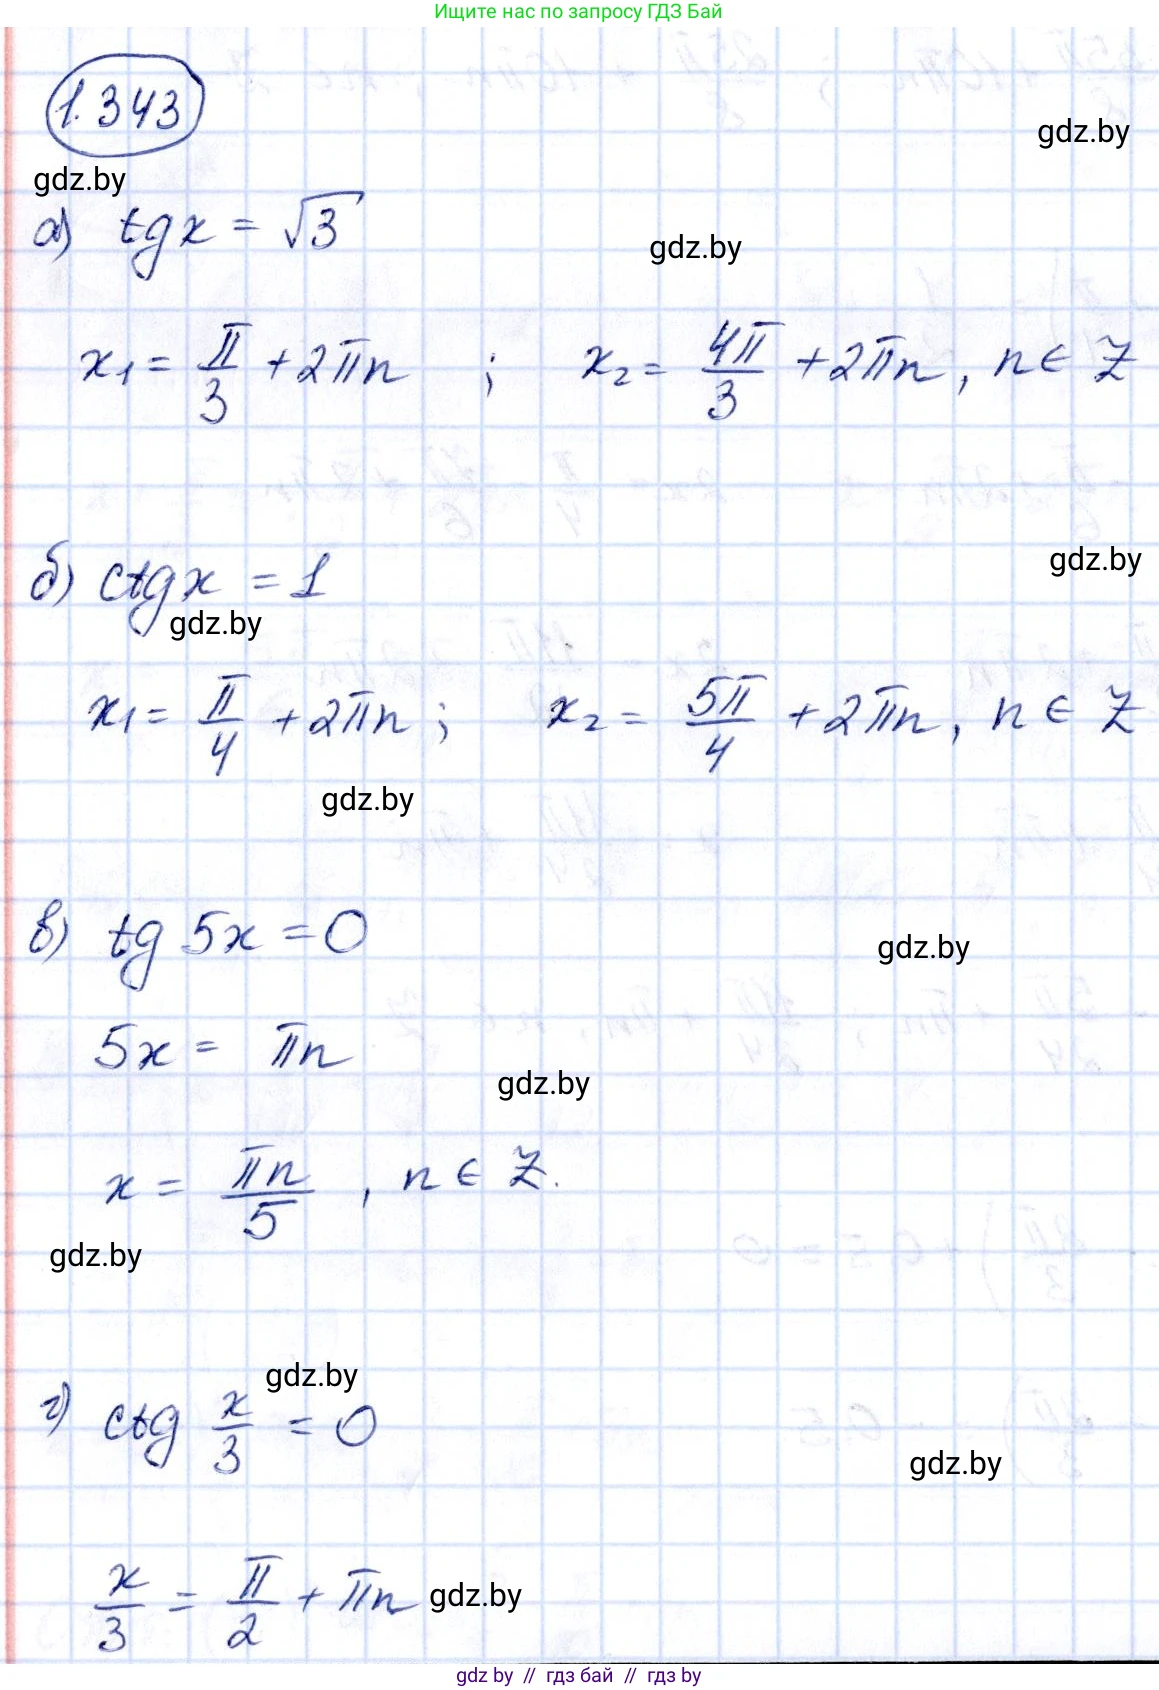 Ищите нас по запросу ГДЗ Бай
1.343
gdz.by
gdz.by
а) tgx = √3
gdz.by
x₁ = π/3 + 2πn ; x₂ = 4π/3 + 2πn, n ∈ Z
gdz.by
б) ctgx = 1
gdz.by
x₁ = π/4 + 2πn ; x₂ = 5π/4 + 2πn, n ∈ Z
gdz.by
в) tg 5x = 0
gdz.by
5x = πn
gdz.by
x = πn/5 , n ∈ Z.
gdz.by
gdz.by
г) ctg x/3 = 0
gdz.by
x/3 = π/2 + πn
gdz.by
gdz by // гдз бай // гдз by